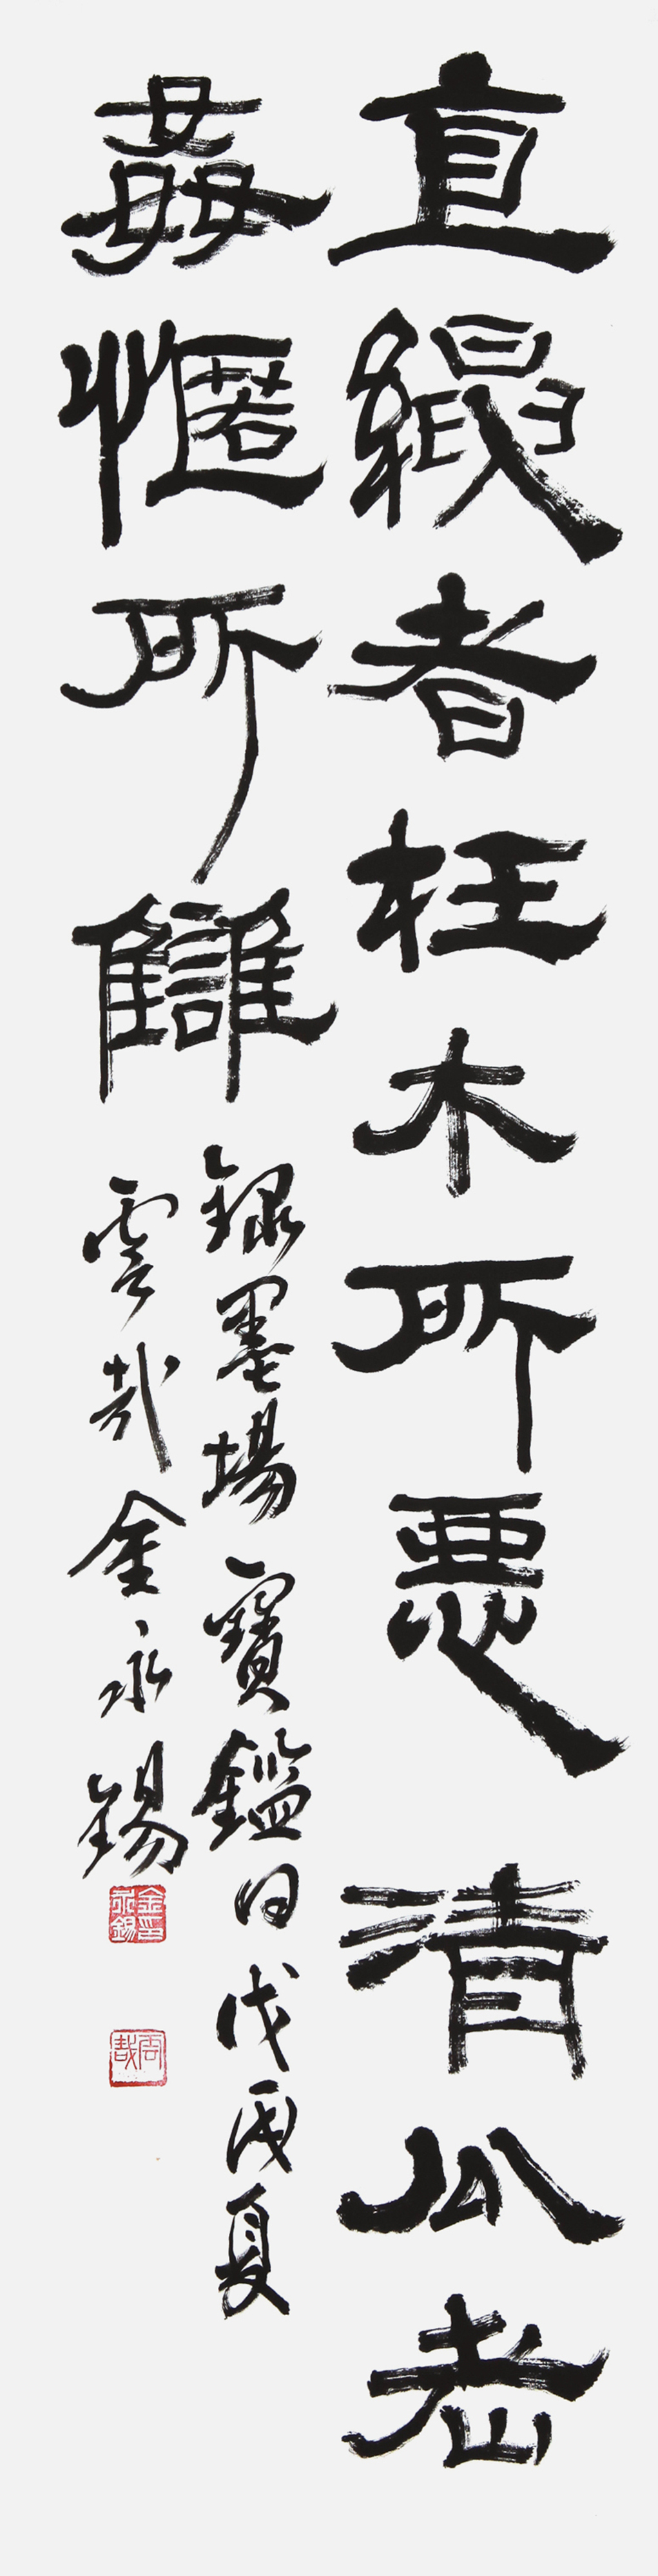 直繩者枉木所惡 清公者
姦慝所讎
錄墨場寶鑑句戊戌夏
雲哉金永錫
金永錫印
雲哉